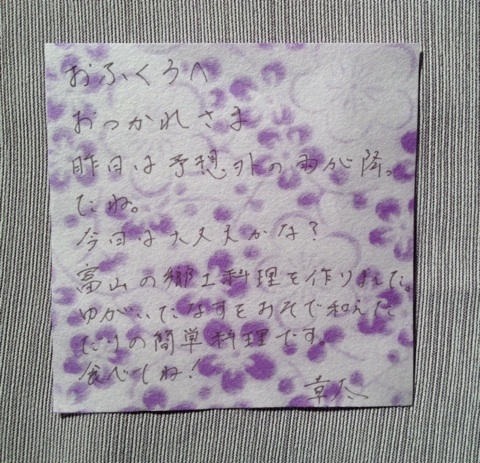 おふくろへ
おつかれさま
昨日は予想外の雨が降っ
たね。
今日は大丈夫かな?
富山の郷土料理を作りました。
ゆがいたなすをみそで和えた
だけの簡単料理です。
食べてね!
章太